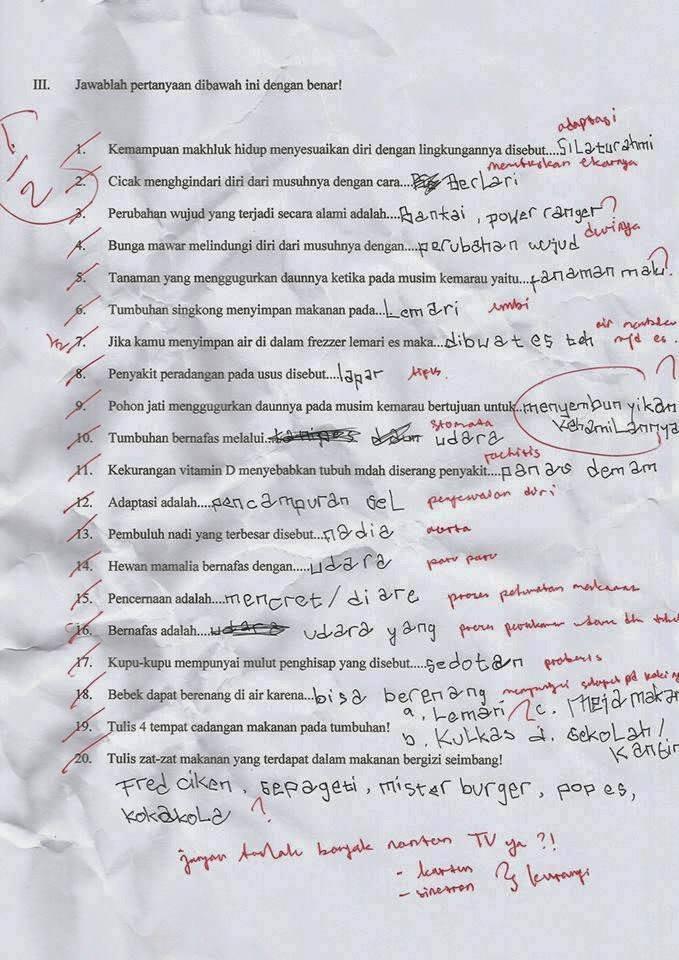 III. Jawablah pertanyaan dibawah ini dengan benar!
1/2
adaptasi
1. Kemampuan makhluk hidup menyesuaikan diri dengan lingkungannya disebut....Silaturahmi
memutuskan ekornya
2. Cicak menghgindari diri dari musuhnya dengan cara....Berlari
3. Perubahan wujud yang terjadi secara alami adalah....Bantai, power ranger ?
durinya
4. Bunga mawar melindungi diri dari musuhnya dengan....perubahan wujud
5. Tanaman yang menggugurkan daunnya ketika pada musim kemarau yaitu....tanaman ?
6. Tumbuhan singkong menyimpan makanan pada....Lemari umbi
air membeku
1/2 7. Jika kamu menyimpan air di dalam frezzer lemari es maka....dibwat es teh mjd es.
8. Penyakit peradangan pada usus disebut....lapar tipus.
9. Pohon jati menggugurkan daunnya pada musim kemarau bertujuan untuk..menyembunyikan ?
kehamilannya
stomata
10. Tumbuhan bernafas melalui.. udara
rachitis
11. Kekurangan vitamin D menyebabkan tubuh mdah diserang penyakit....panas demam
12. Adaptasi adalah....pencampuran sel penyesuaian diri
13. Pembuluh nadi yang terbesar disebut...nadia aorta
14. Hewan mamalia bernafas dengan.....udara paru paru
15. Pencernaan adalah....mencret / diare proses makanan
16. Bernafas adalah.... udara yang proses udara
17. Kupu-kupu mempunyai mulut penghisap yang disebut....sedotan probosis
18. Bebek dapat berenang di air karena...bisa berenang mempunyai selaput pd kaki
a. Lemari ? c. Meja makan
19. Tulis 4 tempat cadangan makanan pada tumbuhan!
b. Kulkas d. sekolah /
kantin
20. Tulis zat-zat makanan yang terdapat dalam makanan bergizi seimbang!
Fred ciken, sepageti, mister burger, pop es,
kokakola ?
jangan banyak nonton TV ya ?!
- kartun
- sinetron
kurangi